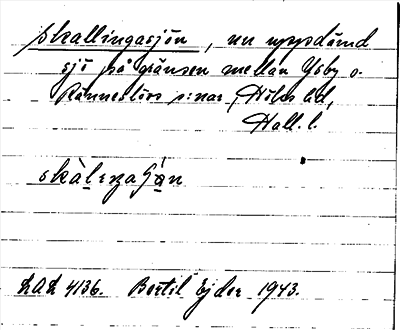 Skallingasjön, nu uppdämd
sjö på gränsen mellan Ysby o.
Ränneslövs s:nar, Höks hd,
Hall. l.
skàlıŋaʃǫ̀n
LAL 4136. Bertil Ejder 1943.